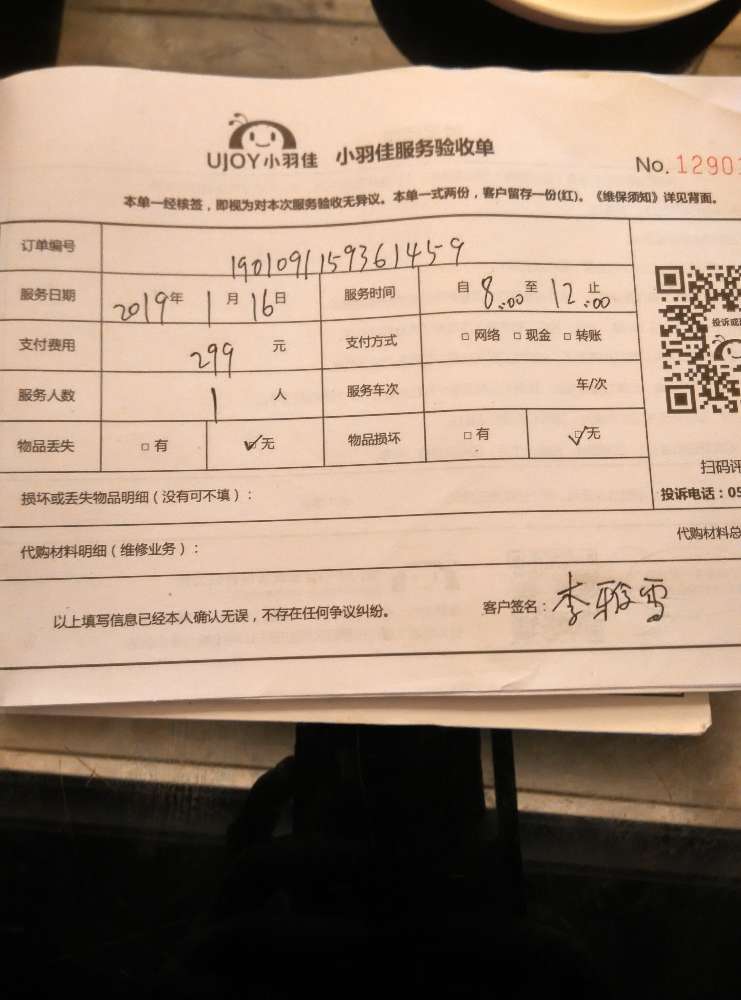 UJOY小羽佳 小羽佳服务验收单
No. 12901
本单一经核签，即视为对本次服务验收无异议。本单一式两份，客户留存一份(红)。《维保须知》详见背面。
订单编号 1901091159361459
服务日期 2019年 1月 16日 服务时间 自 8:00 至 12:00 止
支付费用 299 元 支付方式 □ 网络 □ 现金 □ 转账
服务人数 1 人 服务车次 车/次
物品丢失 □ 有 ☑ 无 物品损坏 □ 有 ☑ 无
投诉或
扫码评
损坏或丢失物品明细（没有可不填）：
投诉电话：05
代购材料明细（维修业务）：
代购材料总
以上填写信息已经本人确认无误，不存在任何争议纠纷。 客户签名：李雅雪